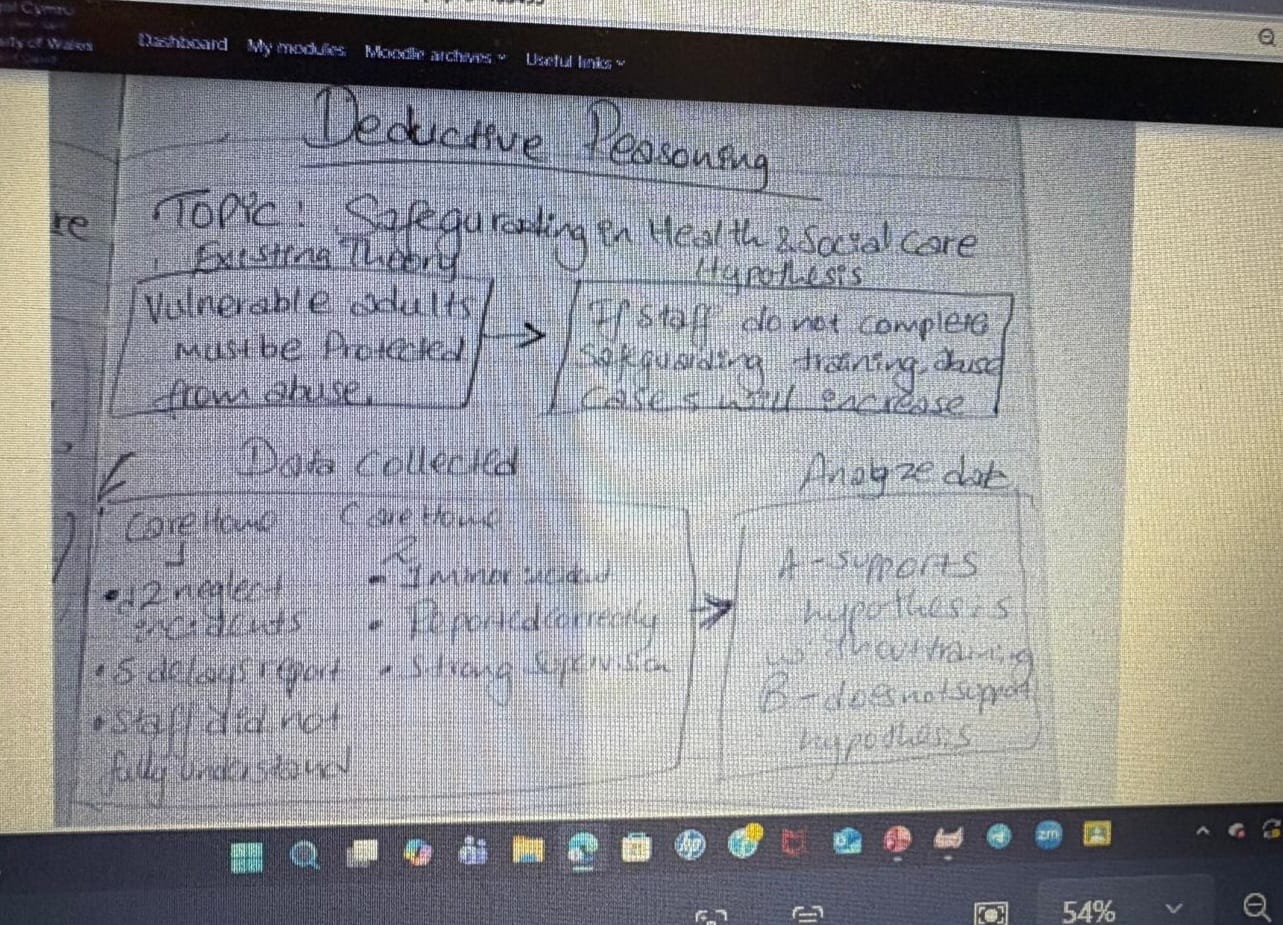 Dashboard My modules Moodle archives Useful links
Deductive Reasoning
re
Topic: Safeguranding in Health & Social Care
Existing Theory
Hypothesis
Vulnerable adults
must be Protected
from abuse.
If staff do not complete
safeguarding training, abuse
cases will increase
Data Collected
Analyze dat
Care Home
1
• 12 neglect
incidents
• 5 delays report
• Staff did not
fully understand
Care Home
2
- 1 minor
• Reported correctly
• Strong Supervision
A - supports
hypothesis
without training
B - does not support
hypothesis
hp
zm
54%